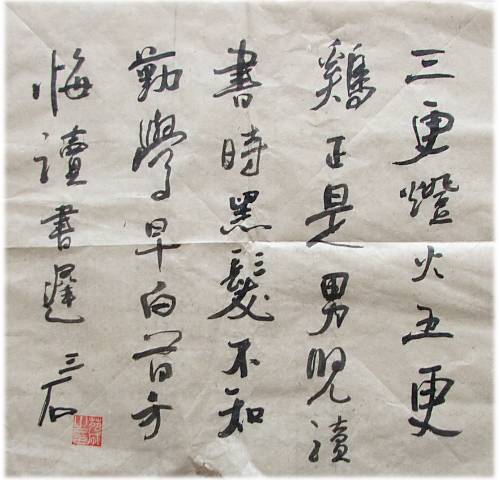 三更燈火五更
鷄正是男児讀
書時黑髮不知
勤學早白首方
悔讀書遲 三石